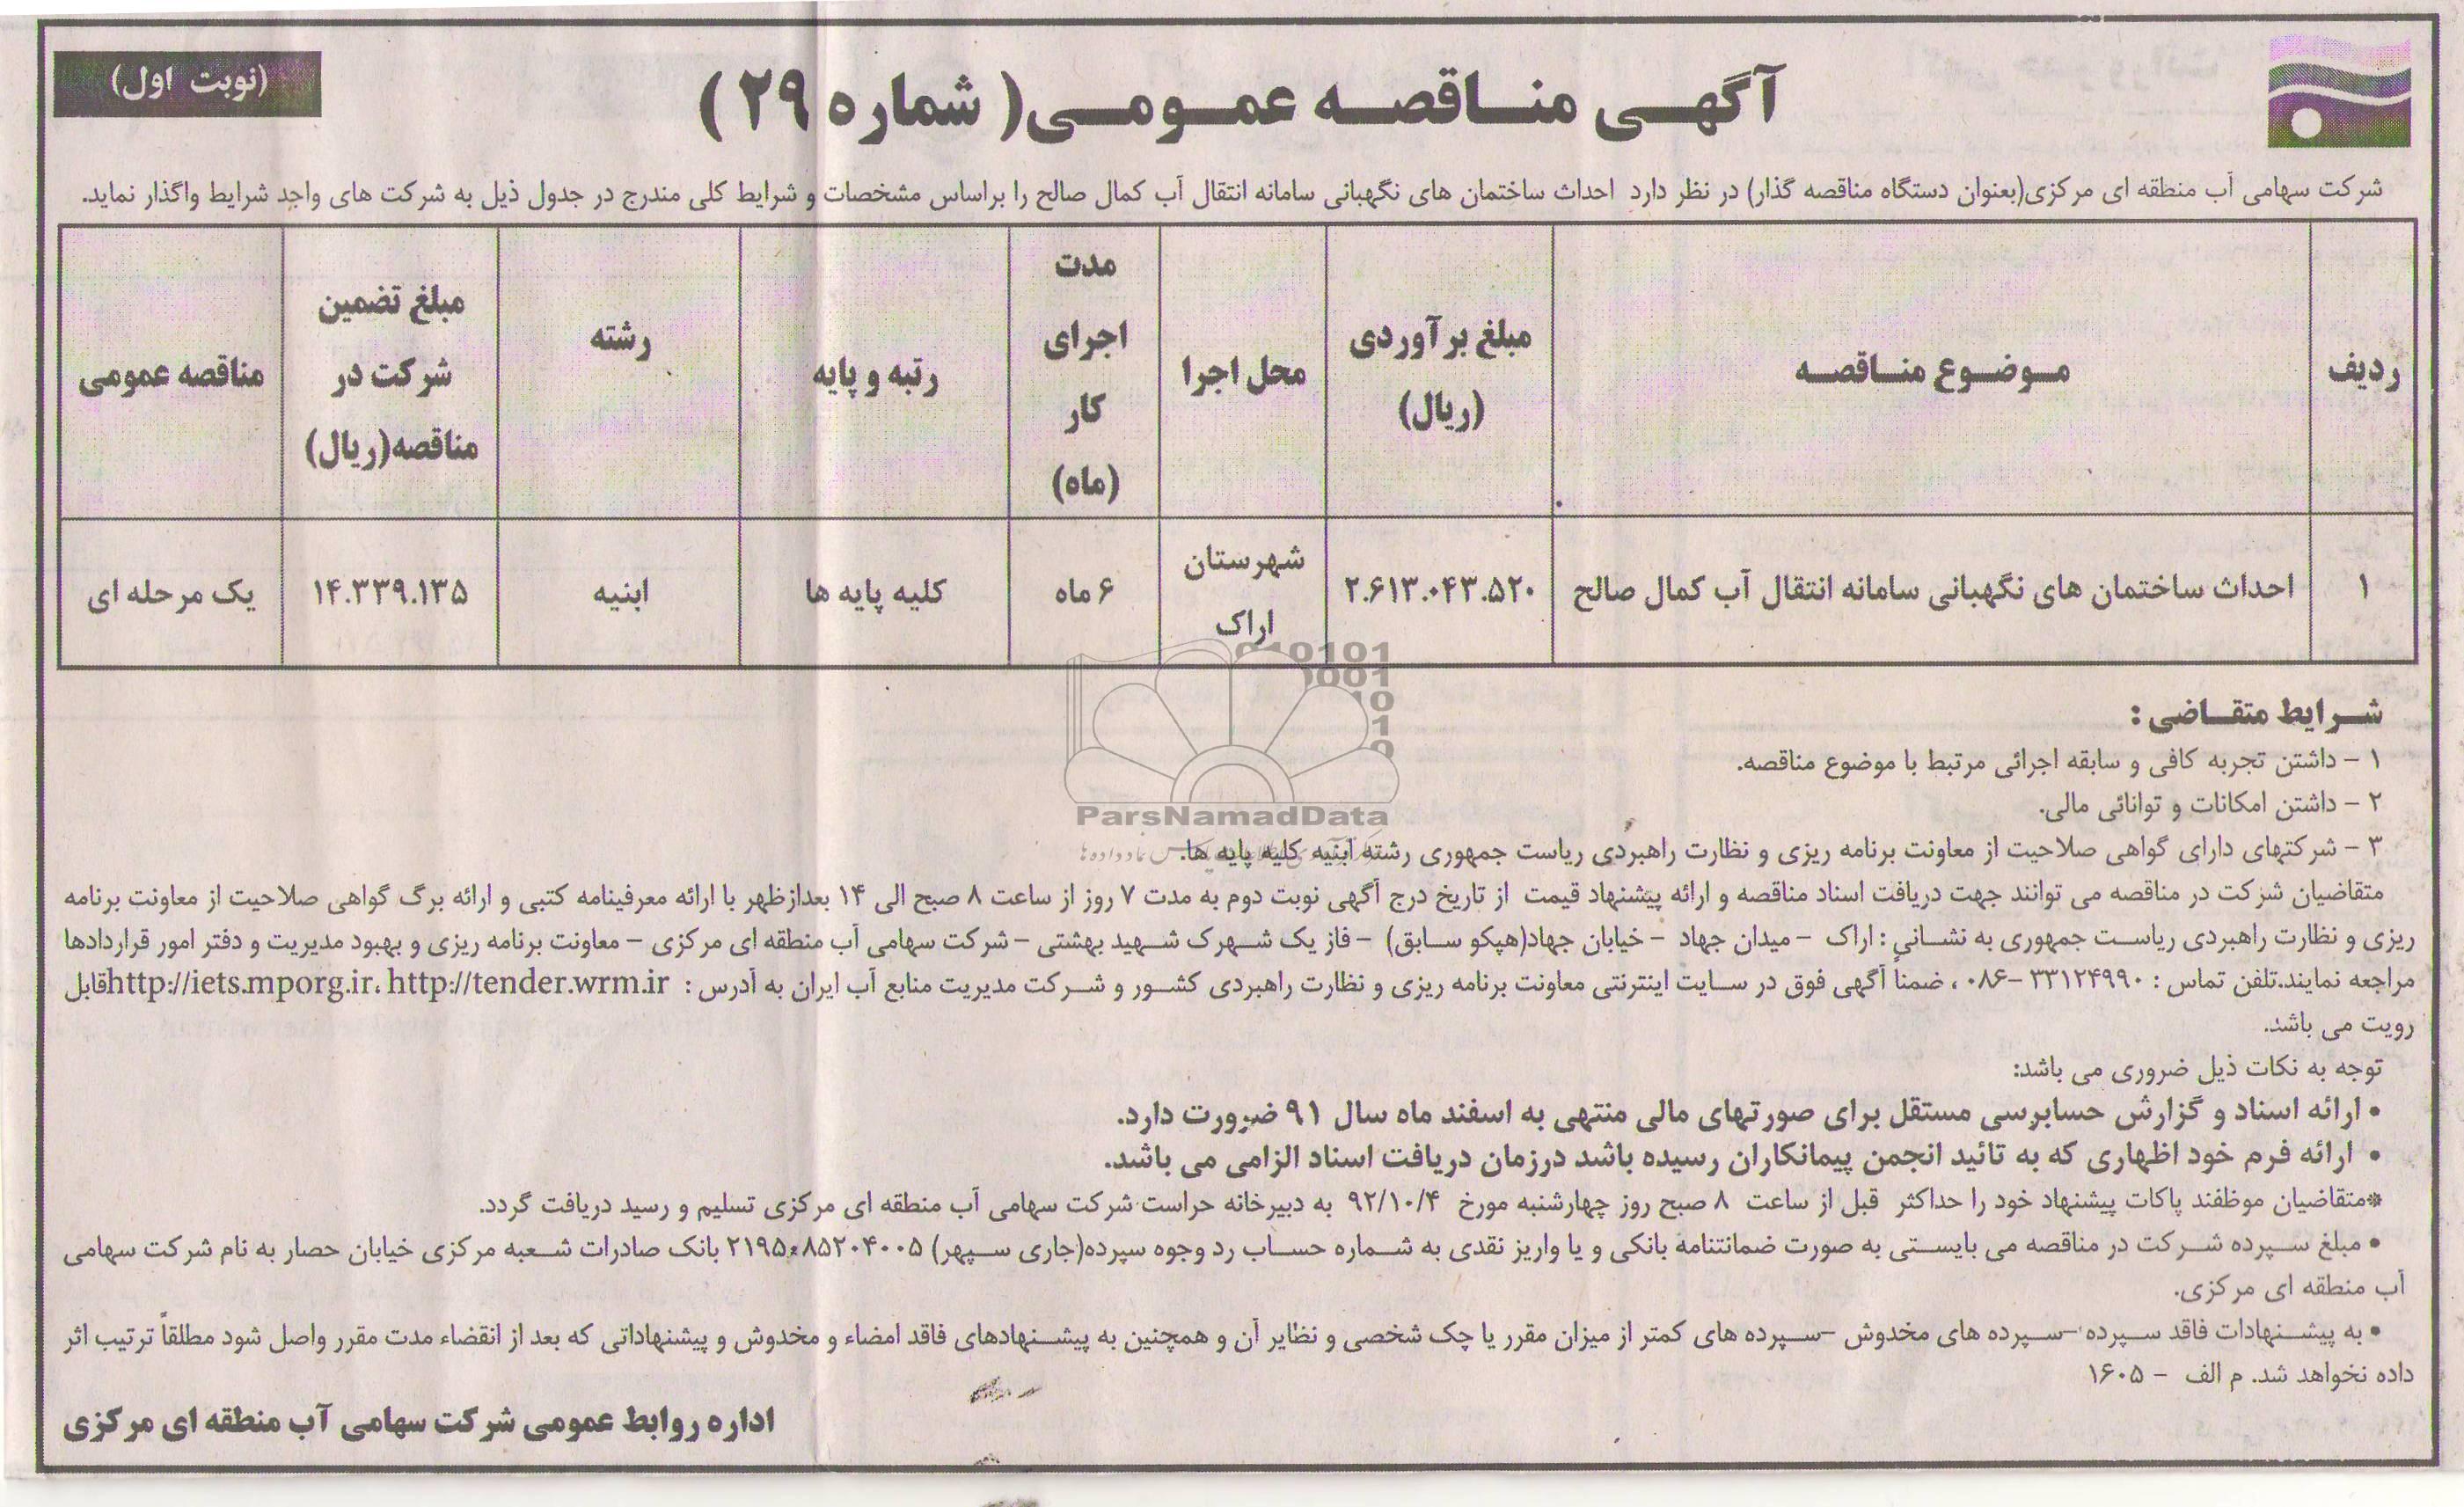 (نوبت اول)
آگهـی مناقصه عمومی( شماره ۲۹ )
شرکت سهامی آب منطقه ای مرکزی(بعنوان دستگاه مناقصه گذار) در نظر دارد احداث ساختمان های نگهبانی سامانه انتقال آب کمال صالح را براساس مشخصات و شرایط کلی مندرج در جدول ذیل به شرکت های واجد شرایط واگذار نماید.
ردیف
موضوع مناقصه
مبلغ برآوردی
(ریال)
محل اجرا
مدت
اجرای
کار
(ماه)
رتبه و پایه
رشته
مبلغ تضمین
شرکت در
مناقصه(ریال)
مناقصه عمومی
۱
احداث ساختمان های نگهبانی سامانه انتقال آب کمال صالح
۲.۶۱۳.۰۴۳.۵۲۰
شهرستان
اراک
۶ ماه
کلیه پایه ها
ابنیه
۱۴.۳۳۹.۱۳۵
یک مرحله ای
شرایط متقاضی :
۱ – داشتن تجربه کافی و سابقه اجرائی مرتبط با موضوع مناقصه.
۲ – داشتن امکانات و توانائی مالی.
ParsNamadData
۳ – شرکتهای دارای گواهی صلاحیت از معاونت برنامه ریزی و نظارت راهبردی ریاست جمهوری رشته ابنیه کلیه پایه ها.
متقاضیان شرکت در مناقصه می توانند جهت دریافت اسناد مناقصه و ارائه پیشنهاد قیمت از تاریخ درج آگهی نوبت دوم به مدت ۷ روز از ساعت ۸ صبح الی ۱۴ بعدازظهر با ارائه معرفینامه کتبی و ارائه برگ گواهی صلاحیت از معاونت برنامه
ریزی و نظارت راهبردی ریاست جمهوری به نشانی : اراک – میدان جهاد – خیابان جهاد(هپکو سابق) –فاز یک شهرک شهید بهشتی – شرکت سهامی آب منطقه ای مرکزی – معاونت برنامه ریزی و بهبود مدیریت و دفتر امور قراردادها
مراجعه نمایند.تلفن تماس : ۳۳۱۲۴۹۹۰ –۰۸۶ ، ضمناً آگهی فوق در سایت اینترنتی معاونت برنامه ریزی و نظارت راهبردی کشور و شرکت مدیریت منابع آب ایران به آدرس : http://iets.mporg.ir، http://tender.wrm.ir قابل
رویت می باشد.
توجه به نکات ذیل ضروری می باشد:
• ارائه اسناد و گزارش حسابرسی مستقل برای صورتهای مالی منتهی به اسفند ماه سال ۹۱ ضرورت دارد.
• ارائه فرم خود اظهاری که به تائید انجمن پیمانکاران رسیده باشد درزمان دریافت اسناد الزامی می باشد.
*متقاضیان موظفند پاکات پیشنهاد خود را حداکثر قبل از ساعت ۸ صبح روز چهارشنبه مورخ ۹۲/۱۰/۴ به دبیرخانه حراست شرکت سهامی آب منطقه ای مرکزی تسلیم و رسید دریافت گردد.
• مبلغ سپرده شرکت در مناقصه می بایستی به صورت ضمانتنامه بانکی و یا واریز نقدی به شماره حساب رد وجوه سپرده(جاری سپهر) بانک صادرات شعبه مرکزی خیابان حصار به نام شرکت سهامی
آب منطقه ای مرکزی.
• به پیشنهادات فاقد سپرده –سپرده های مخدوش –سپرده های کمتر از میزان مقرر یا چک شخصی و نظایر آن و همچنین به پیشنهادهای فاقد امضاء و مخدوش و پیشنهاداتی که بعد از انقضاء مدت مقرر واصل شود مطلقاً ترتیب اثر
داده نخواهد شد. م الف – ۱۶۰۵
اداره روابط عمومی شرکت سهامی آب منطقه ای مرکزی